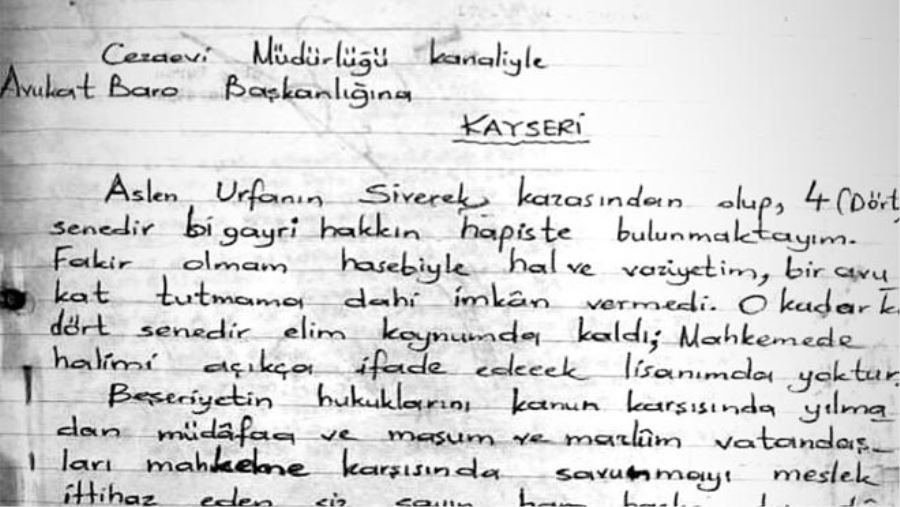 Cezaevi Müdürlüğü kanaliyle
Avukat Baro Başkanlığına
KAYSERİ
Aslen Urfanın Siverek kazasından olup, 4 (Dört
senedir bi gayri hakkın hapiste bulunmaktayım.
Fakir olmam hasebiyle hal ve vaziyetim, bir avu
kat tutmama dahi imkân vermedi. O kadar k
dört senedir elim koynumda kaldı; Mahkemede
halimi açıkça ifade edecek lisanımda yoktur
Beşeriyetin hukuklarını kanun karşısında yılma
dan müdâfaa ve masum ve mazlûm vatandaş_
ları mahkeme karşısında savunmayı meslek
ittihaz eden siz sayın